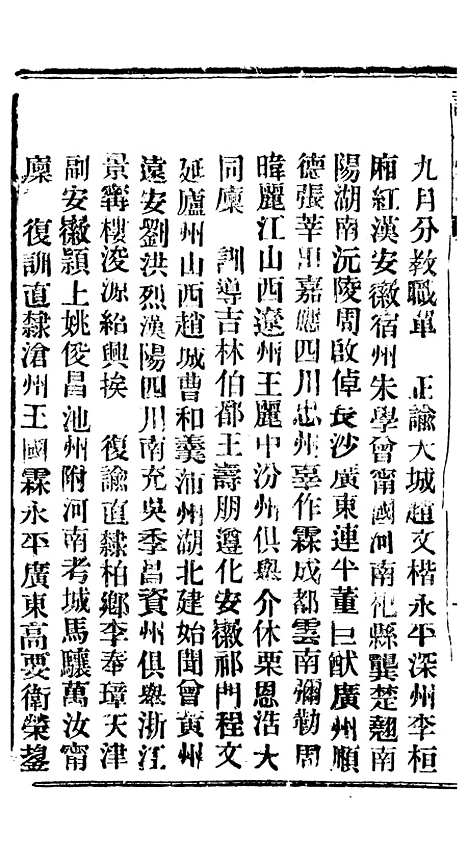 九月分教職單　正諭大城趙文楷永平深州李桓
廂紅漢安徽宿州朱學曾甯國河南杞縣龔楚翹南
陽湖南沅陵周啟倬長沙廣東連平董巨猷廣州順
德張莘田嘉應四川忠州辜作霖成都雲南彌勒周
暐麗江山西遼州王麗中汾州俱舉介休栗恩浩大
同廩　訓導吉林伯都王壽朋遵化安徽祁門程文
延廬州山西趙城曹和羹蒲州湖北建始聞曾黃州
遠安劉洪烈漢陽四川南充吳季昌資州俱舉浙江
景寗樓浚源紹興挨　復諭直隸柏鄉李奉璋天津
副安徽潁上姚俊昌池州附河南考城馬驤萬汝甯
廩　復訓直隸滄州王國霖永平廣東高要衛榮鋆